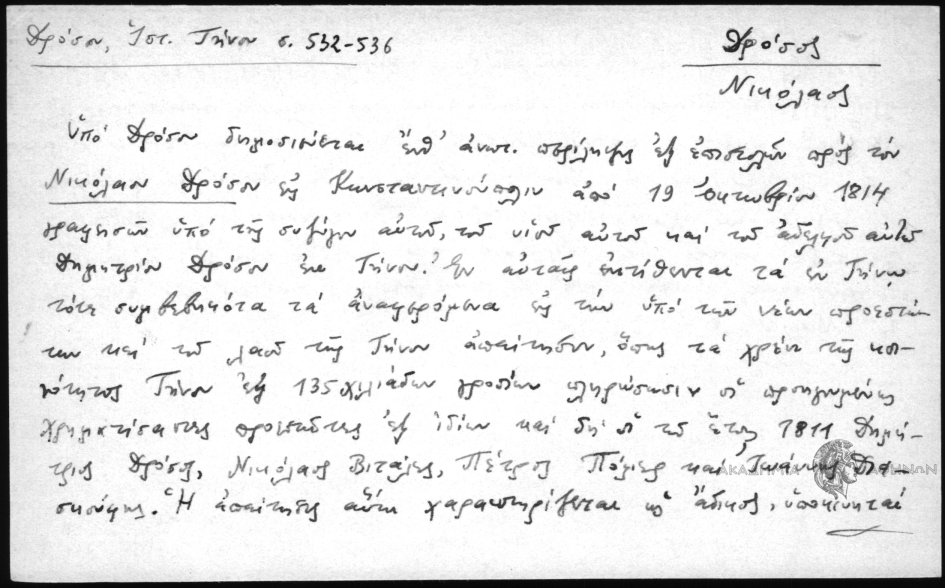 Δρόσου, Ἱστ. Τήνου σ. 532-536
Δρόσος
Νικόλαος
Ὑπό Δρόσου δημοσιεύεται ἔνθ' ἀνωτ. περίληψις ἐξ ἐπιστολῶν πρός τόν
Νικόλαον Δρόσον εἰς Κωνσταντινούπολιν ἀπό 19 Ὀκτωβρίου 1814
γραφεισῶν ὑπό τῆς συζύγου αὐτοῦ, τοῦ υἱοῦ αὐτοῦ καί τοῦ ἀδελφοῦ αὐτοῦ
Δημητρίου Δρόσου ἐκ Τήνου. Ἐν αὐταῖς ἐκτίθενται τά ἐν Τήνῳ
τότε συμβεβηκότα τά ἀναφερόμενα εἰς τήν ὑπό τῶν νέων προεστώ-
των καί τοῦ λαοῦ τῆς Τήνου ἀπαίτησιν, ὅπως τά χρέη τῆς κοι-
νότητος Τήνου ἐξ 135 χιλιάδων γροσίων πληρώσωσιν οἱ προηγουμένως
χρηματίσαντες προεστῶτες ἐξ ἰδίων καί δή οἱ τοῦ ἔτους 1811 Δημή-
τριος Δρόσος, Νικόλαος Βιτάλης, Πέτρος καί Ἰωάννης
Ἡ ἀπαίτησις αὕτη χαρακτηρίζεται ὡς ἄδικος, ὑποκινηταί
ΑΚΑΔΗΜΙΑ ΑΘΗΝΩΝ